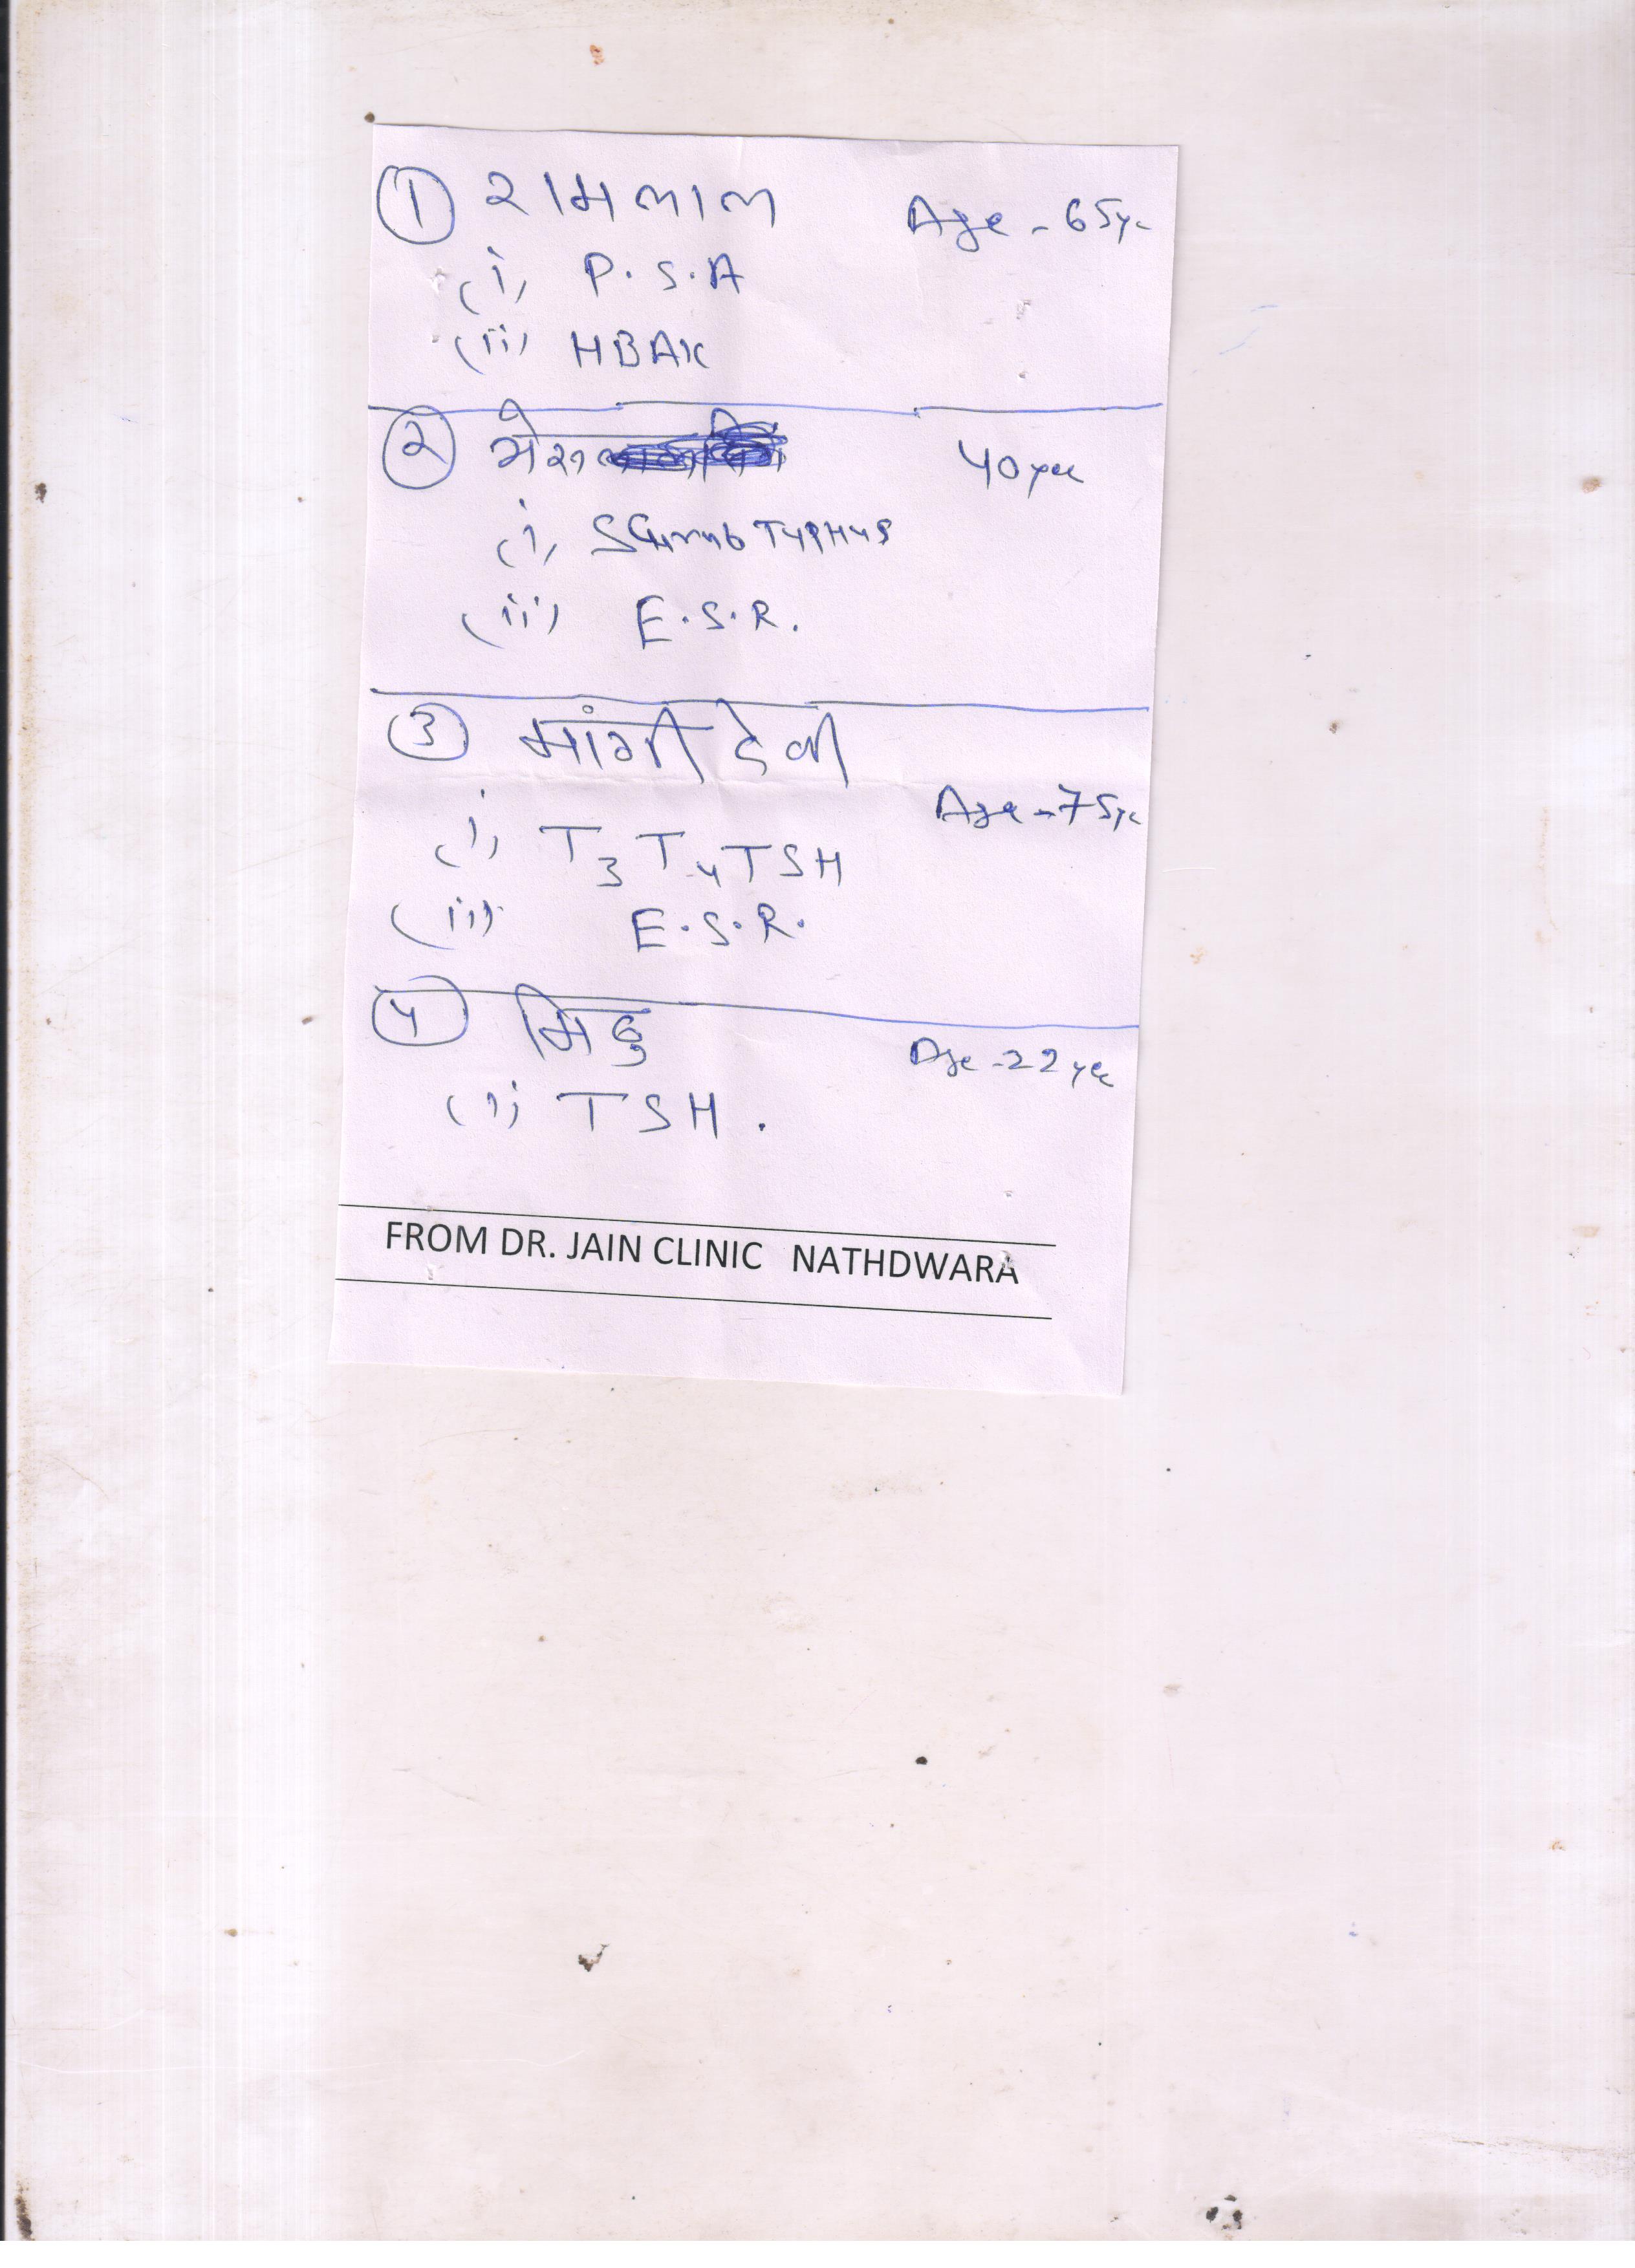 ① रामलाल Age - 65yr
(i) P.S.A
(ii) HBAIC
② भेरू 40yer
(i) SCurub TYPHYS
(ii) E.S.R.
③ मांगी देवी
Age - 75yr
(i) T3 T4 TSH
(ii) E.S.R.
④ मिठु Age - 22 yer
(i) TSH.
FROM DR. JAIN CLINIC NATHDWARA